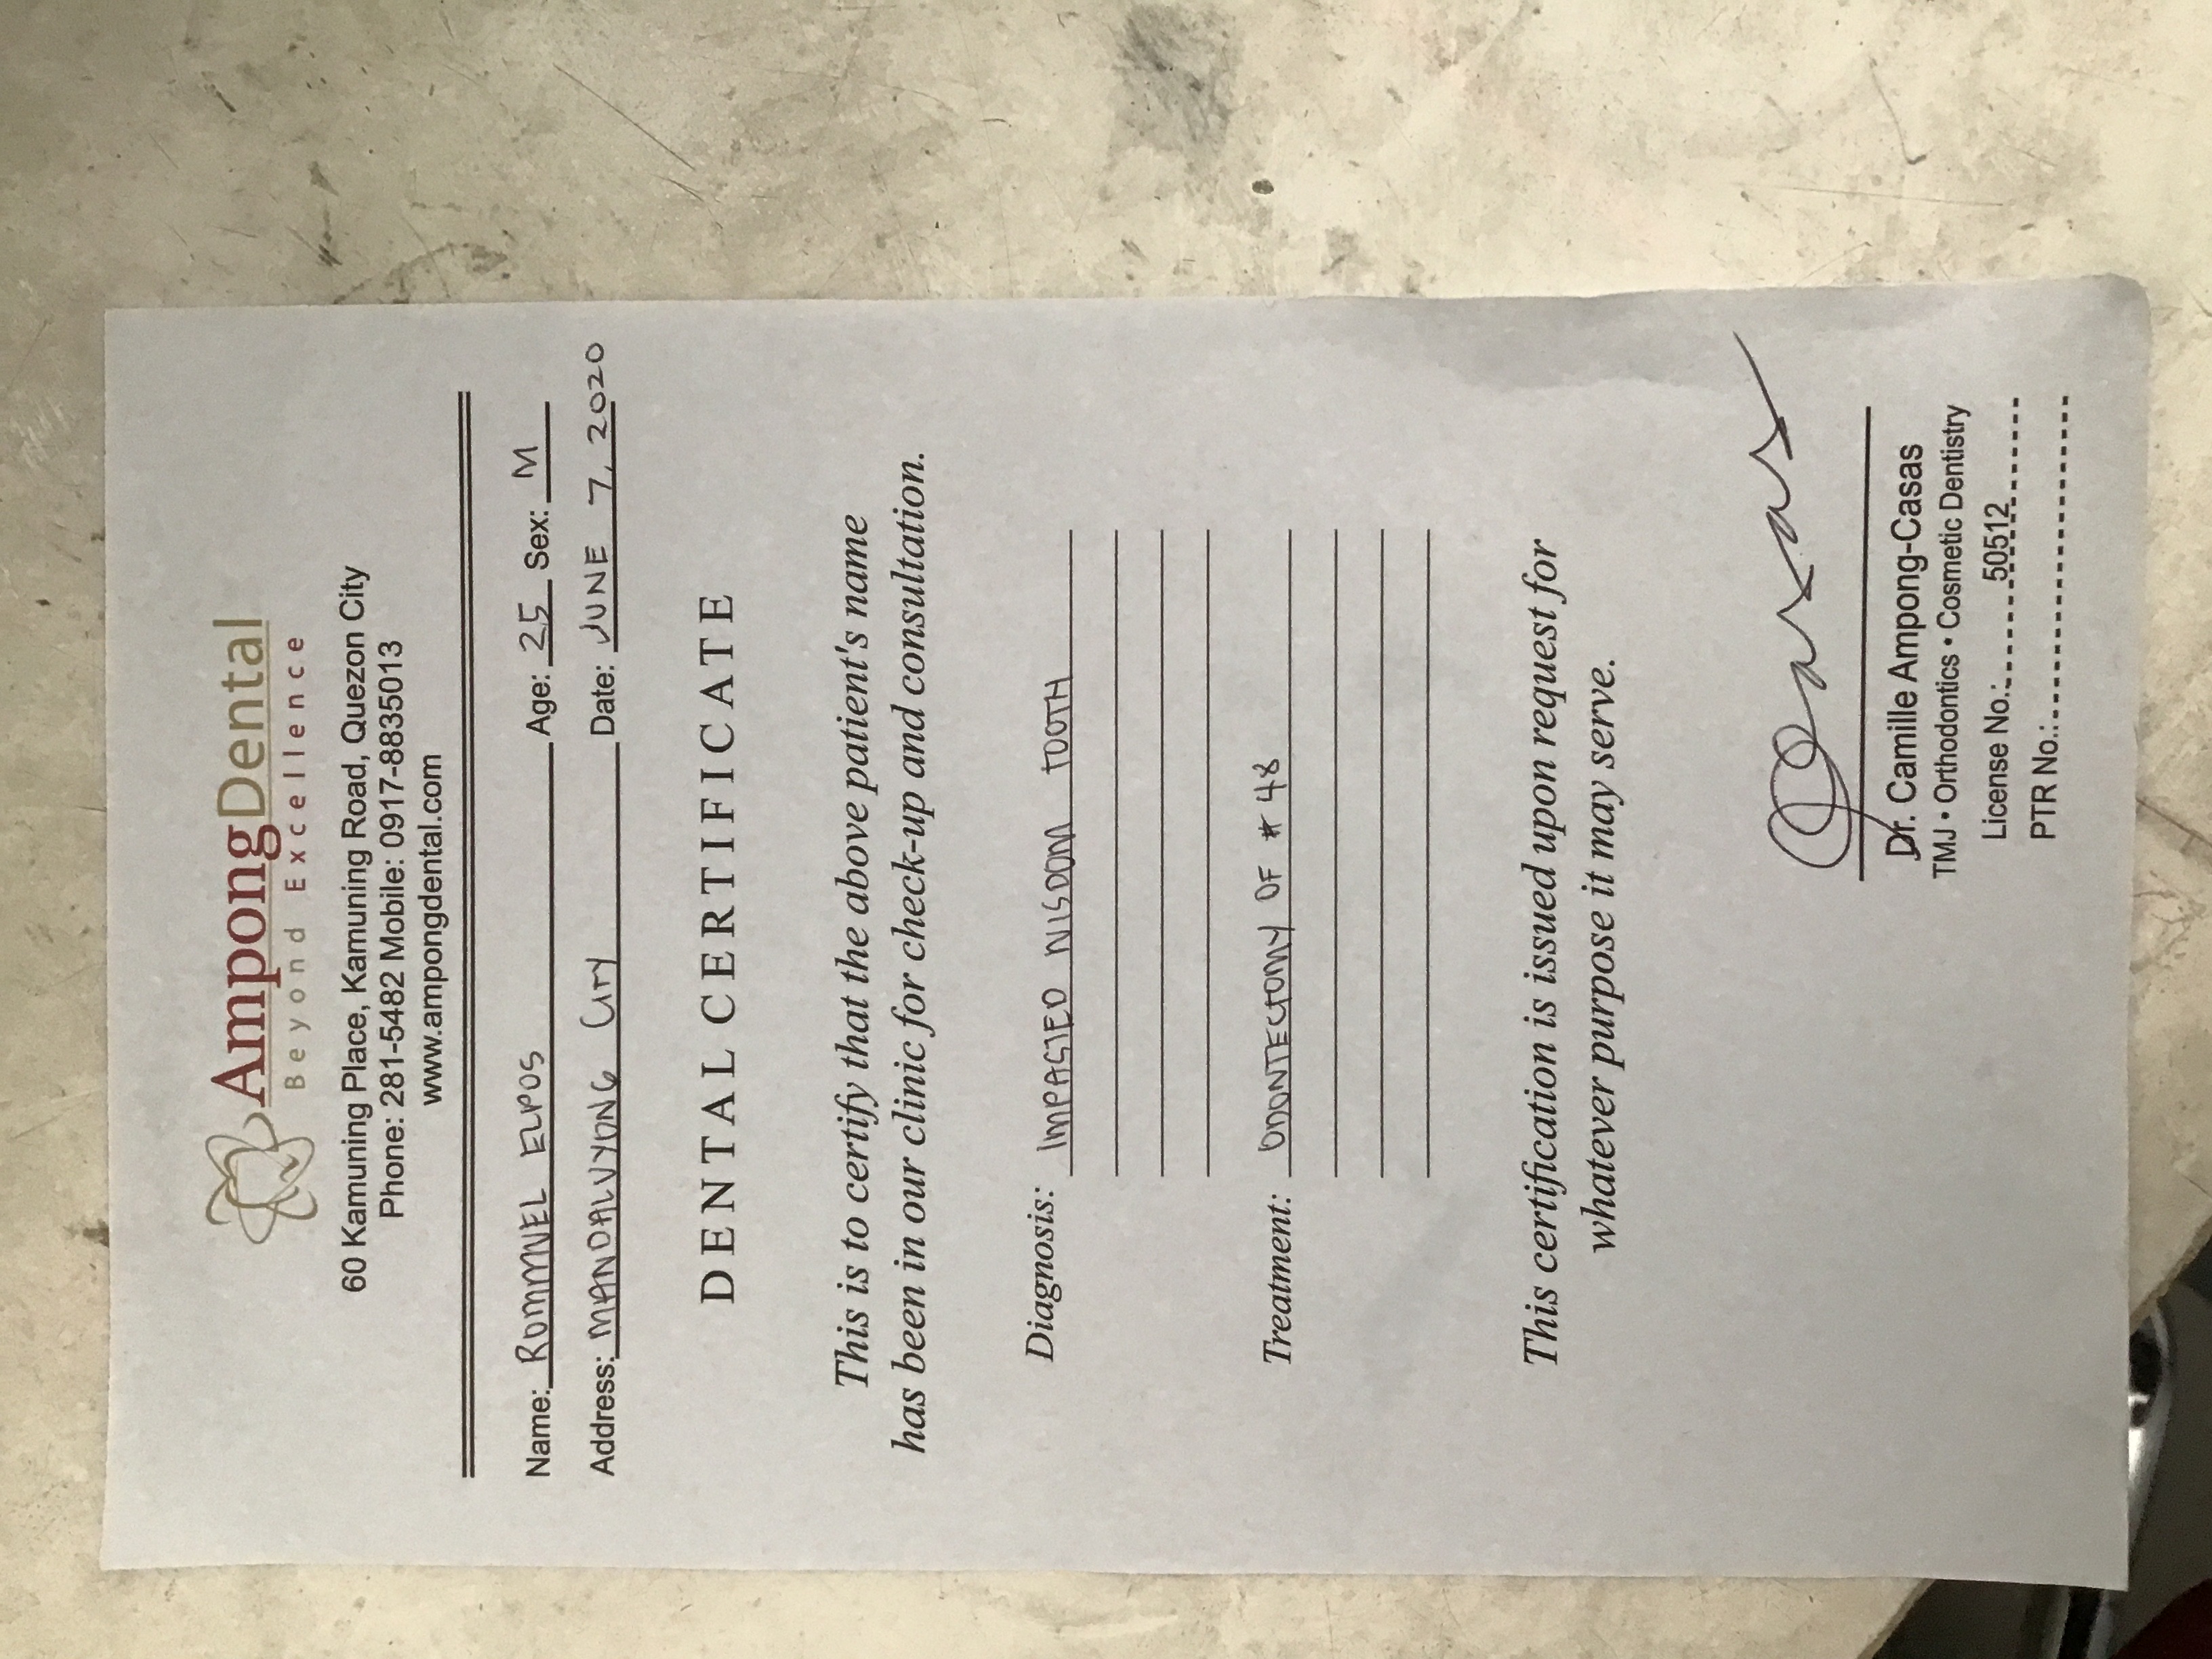 AmpongDental
Beyond Excellence
60 Kamuning Place, Kamuning Road, Quezon City
Phone: 281-5482 Mobile: 0917-8835013
www.ampongdental.com
Name: ROMMNEL ELPOS Age: 25 Sex: M
Address: MANDALUYONG CITY Date: JUNE 7, 2020
DENTAL CERTIFICATE
This is to certify that the above patient's name
has been in our clinic for check-up and consultation.
Diagnosis: IMPACTED WISDOM TOOTH
Treatment: ODONTECTOMY OF # 48
This certification is issued upon request for
whatever purpose it may serve.
Casas
Dr. Camille Ampong-Casas
TMJ • Orthodontics • Cosmetic Dentistry
License No.: 50512
PTR No.: